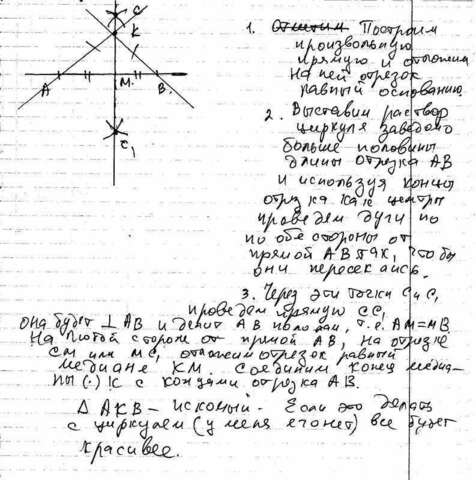 C
K
A
M
B
C₁
1. Отметим Построим
произвольную
прямую и отложим
на ней отрезок
равный основанию
2. Выставим раствор
циркуля заведомо
больше половины
длины отрезка AB
и используя концы
отрезка как центры
проведем дуги по
по обе стороны от
прямой AB так, что бы
они пересекались.
3. Через эти точки C и C₁
проведем прямую CC₁
она будет ⊥ AB и делит AB пополам, т.е. AM=MB.
На любой стороне от прямой AB, на отрезке
CM или MC₁ отложим отрезок равный
медиане KM. Соединим конец медиа-
ны (·) K с концами отрезка AB.
△ AKB – искомый. Если это делать
с циркулем (у меня его нет) все будет
красивее.